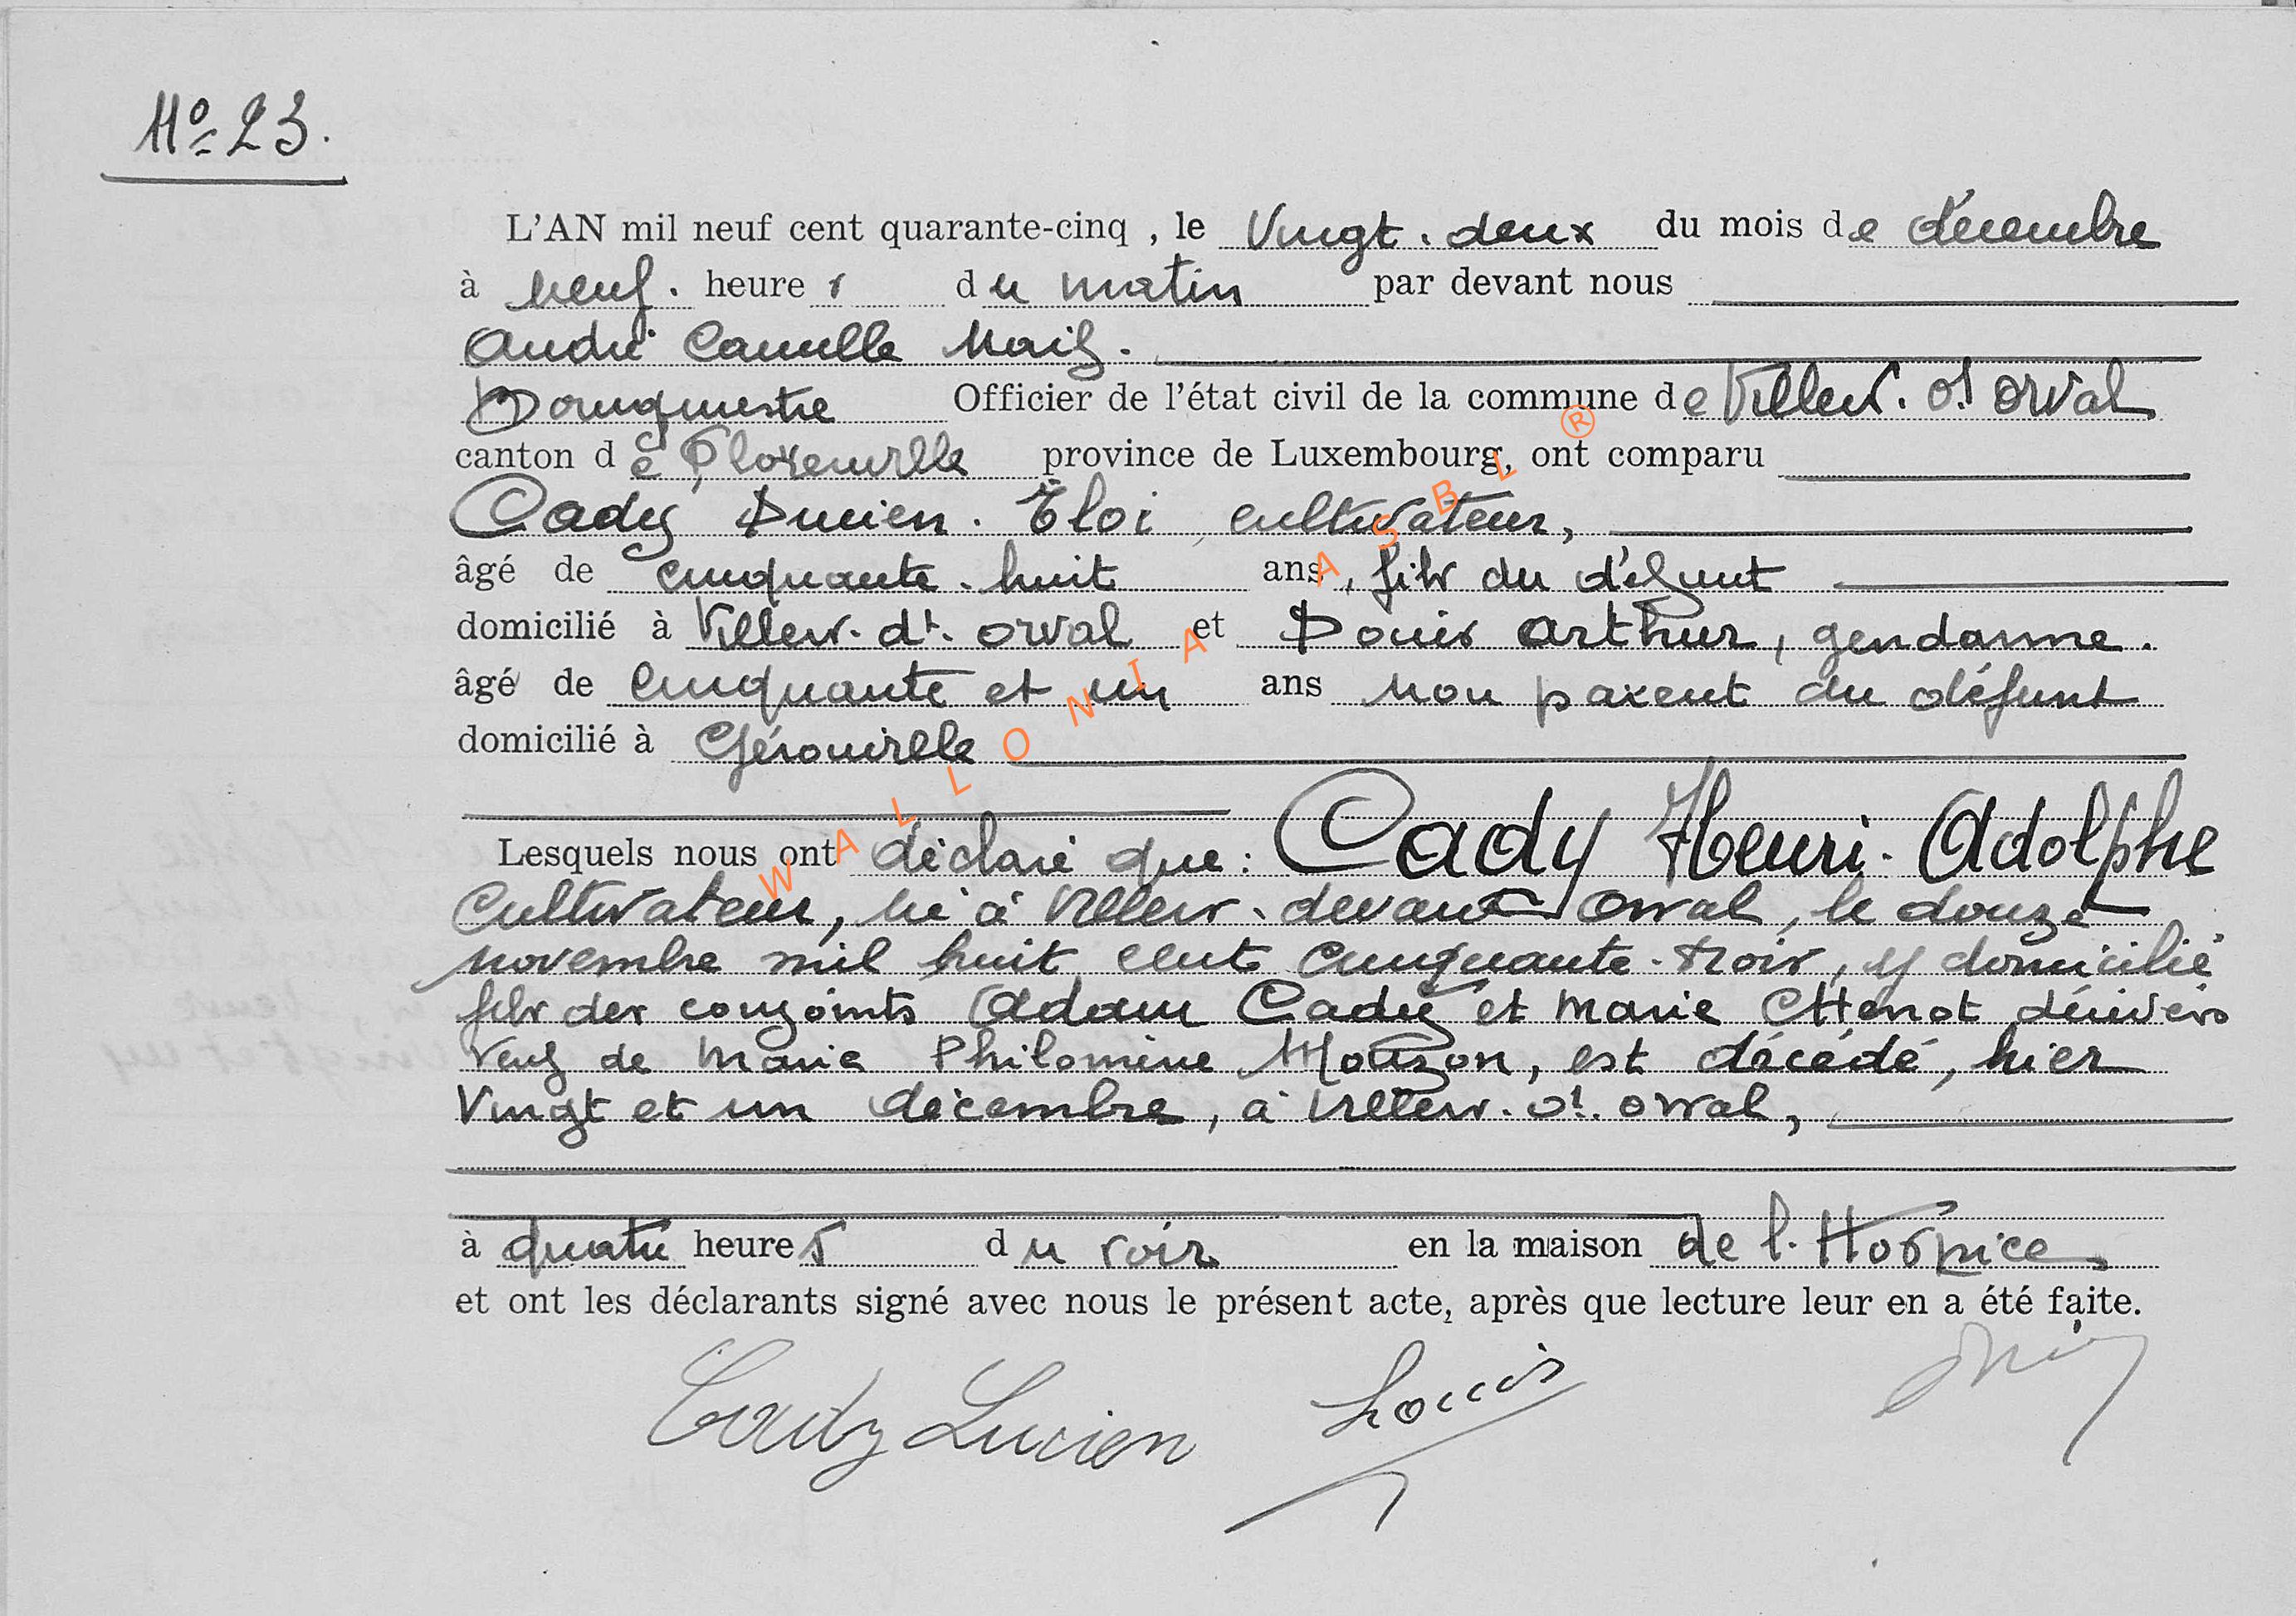 N° 23.
L'AN mil neuf cent quarante-cinq , le Vingt-deux du mois de décembre
à neuf heures du matin par devant nous
André Camille
Bourgmestre Officier de l'état civil de la commune de Villers-dt Orval
canton de Florenville province de Luxembourg, ont comparu
Cady Lucien-Eloi cultivateur,
âgé de cinquante-huit ans, fils du défunt
domicilié à Villers-dt-Orval et Louis Arthur, gendarme.
âgé de cinquante et un ans non parent du défunt
domicilié à Gérouville
Lesquels nous ont déclaré que: Cady Henri-Adolphe
Cultivateur, né à Villers-devant-Orval, le douze
novembre mil huit cent cinquante-trois, y domicilié
fils des conjoints Adam Cady et Marie décédés
veuf de Marie Philomène Mouzon, est décédé, hier
Vingt et un décembre, à Villers-dt-Orval,
à quatre heures du soir en la maison de l'Hospice
et ont les déclarants signé avec nous le présent acte, après que lecture leur en a été faite.
Cady Lucien Louis
WALLONIA ASBL ®